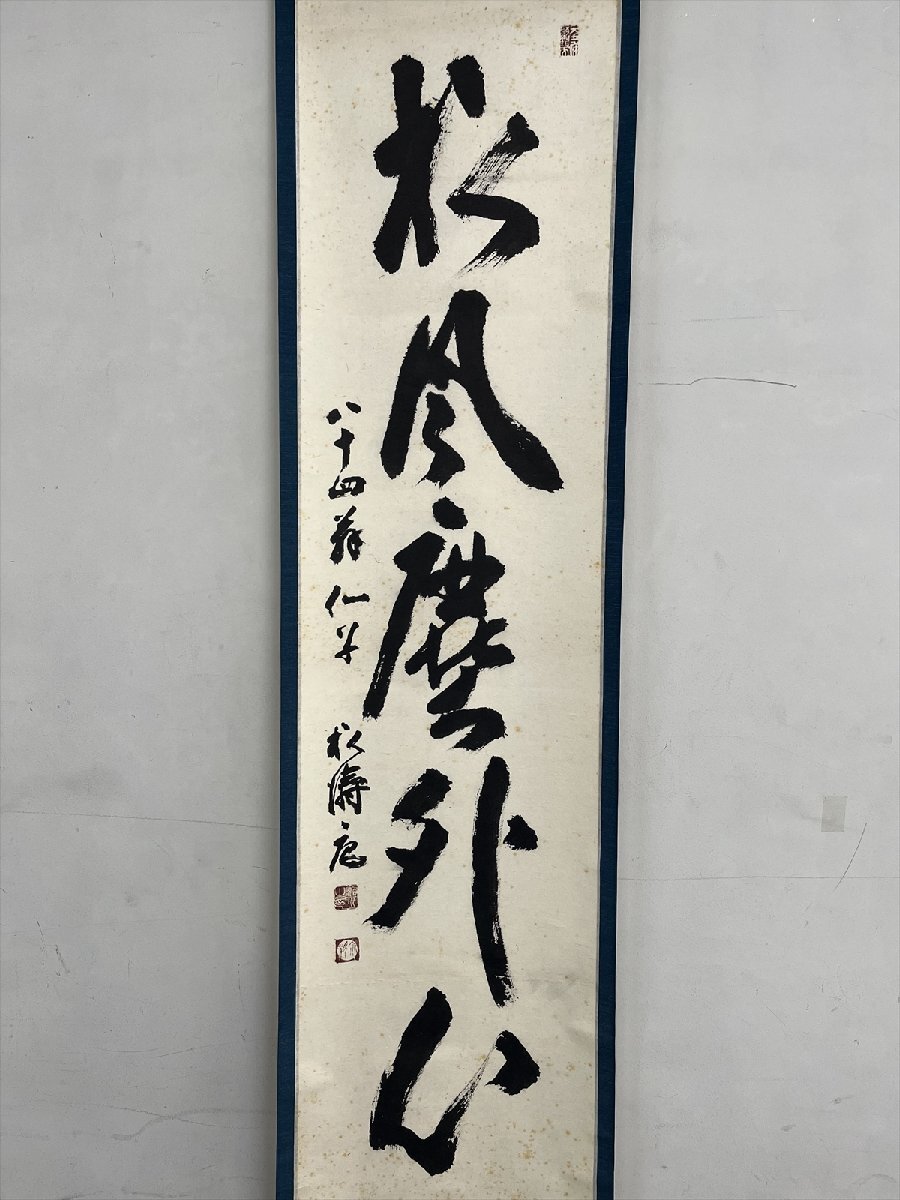 松風塵外心
八十四翁仁平 松濤庵